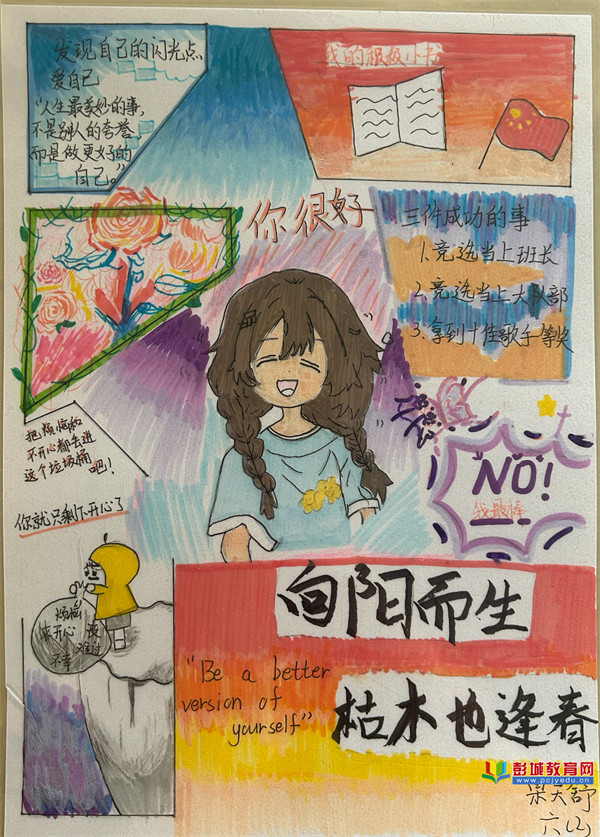 发现自己的闪光点
爱自己
“人生最美妙的事,
不是别人的夸誉,
而是做更好的
自己。”
我的积极小书
你很好
三件成功的事
1.竞选当上班长
2.竞选当上大队部
3.拿到十佳歌手一等奖
把烦恼和
不开心都丢进
这个垃圾桶
吧!
你就只剩下开心了
NO!
我最棒
烦恼
不开心
难过
不幸
向阳而生
"Be a better
version of
yourself"
枯木也逢春
彭城教育网
www.pcjyedu.cn
天舒
六(2)